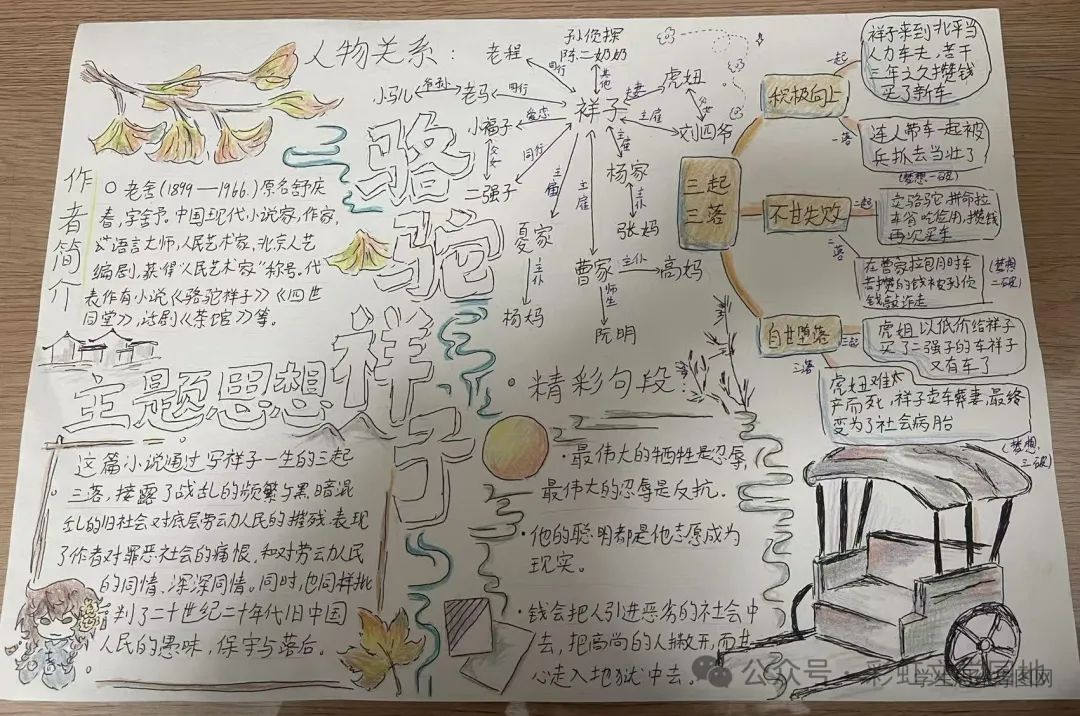 人物关系:
老程
孙侦探
陈二奶奶
同行
其他
小马儿
爷孙
老马
同行
祥子
夫妻
虎妞
父女
主雇
刘四爷
小福子
爱恋
父女
同行
二强子
主雇
夏家
主仆
杨妈
主雇
曹家
主仆
高妈
师生
阮明
主雇
杨家
主仆
张妈
骆驼祥子
作者简介
老舍(1899—1966.)原名舒庆
春,字舍予.中国现代小说家,作家,
语言大师,人民艺术家,北京人艺
编剧,获得"人民艺术家"称号.代
表作有小说《骆驼祥子》《四世
同堂》,话剧《茶馆》等。
三起
三落
积极向上
一起
祥子来到北平当
人力车夫,苦干
三年之久攒钱
买了新车
一落
连人带车一起被
兵抓去当壮丁
(梦想一破)
不甘失败
二起
卖骆驼,拼命拉
车省吃俭用,攒钱
再次买车
二落
在曹家拉包月时车
苦攒的钱被孙侦
钱敲诈走
(梦想
二破)
自甘堕落
三起
虎妞以低价给祥子
买了二强子的车祥子
又有车了
三落
虎妞难
产而死,祥子卖车葬妻,最终
变为了社会病胎
(梦想
三破)
主题思想
这篇小说通过写祥子一生的三起
三落,接露了战乱的频繁与黑暗混
乱的旧社会对底层劳动人民的摧残.表现
了作者对罪恶社会的痛恨,和对劳动人民
的同情、深深同情。同时,也同样批
判了二十世纪二十年代旧中国
人民的愚昧,保守与落后。
·精彩句段:
·最伟大的牺牲是忍辱,
最伟大的忍辱是反抗.
·他的聪明都是他志愿成为
现实。
·钱会把人引进恶劣的社会中
去,把高尚的人撇开,而甘
心走入地狱中去。
公众号·彩虹